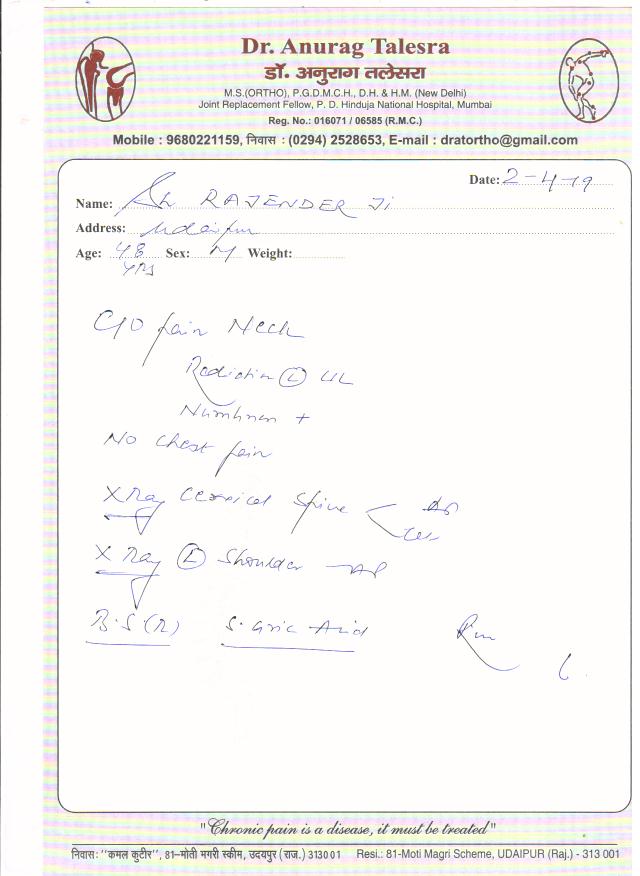 Dr. Anurag Talesra
डॉ. अनुराग तलेसरा
M.S.(ORTHO), P.G.D.M.C.H., D.H. & H.M. (New Delhi)
Joint Replacement Fellow, P. D. Hinduja National Hospital, Mumbai
Reg. No.: 016071 / 06585 (R.M.C.)
Mobile : 9680221159, निवास : (0294) 2528653, E-mail : dratortho@gmail.com
Date: 2-4-19
Name: Sh RAJENDER Ji
Address: Udaipur
Age: 48 yrs Sex: M Weight:
C/O pain Neck
Radiation (L) UL
Numbness +
No chest pain
X Ray Cervical Spine AP
Lat
X Ray (L) Shoulder - AP
B.S.(R) S. Uric Acid
"Chronic pain is a disease, it must be treated"
निवास: "कमल कुटीर", 81-मोती मगरी स्कीम, उदयपुर (राज.) 313001 Resi.: 81-Moti Magri Scheme, UDAIPUR (Raj.) - 313 001